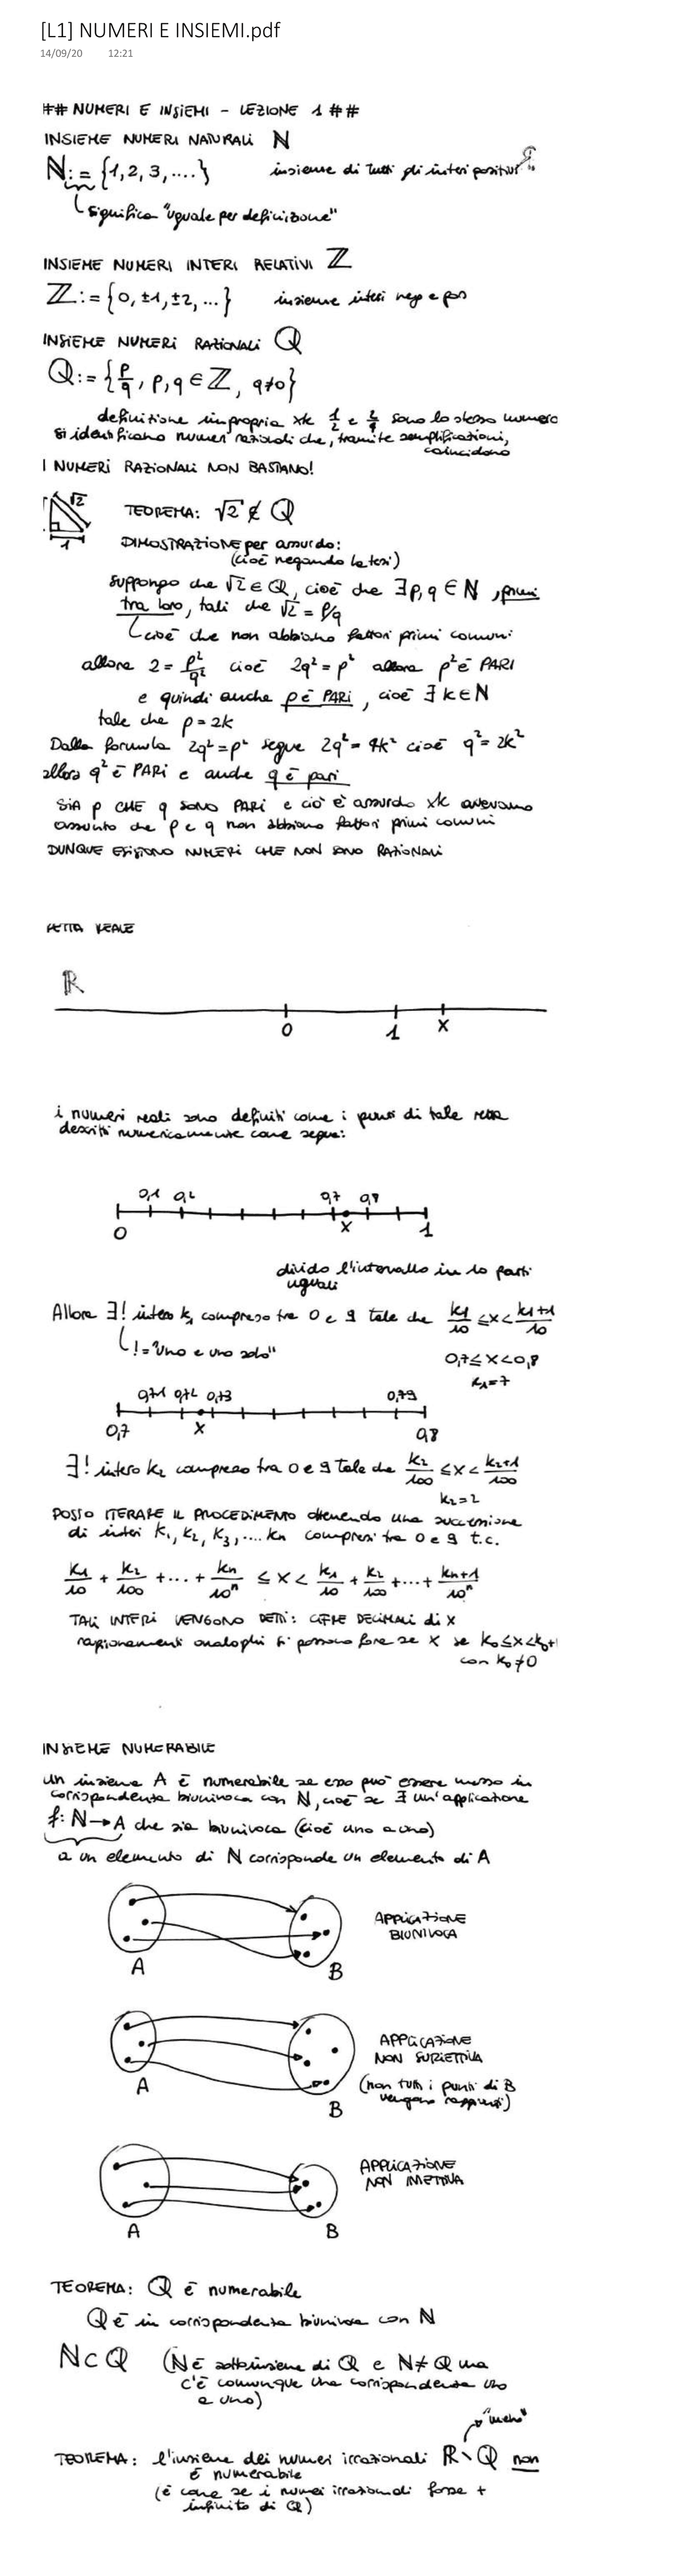 [L1] NUMERI E INSIEMI.pdf
14/09/20 12:21
## NUMERI E INSIEMI - LEZIONE 1 ##
INSIEME NUMERI NATURALI N
N := {1, 2, 3, ....} insieme di tutti gli interi positivi
significa "uguale per definizione"
INSIEME NUMERI INTERI RELATIVI Z
Z := {0, ±1, ±2, ...} insieme interi neg e pos
INSIEME NUMERI RAZIONALI Q
Q := {p/q, p, q ∈ Z, q≠0}
definizione impropria xk 1/2 e 2/4 sono lo stesso numero
si identificano numeri razionali che, tramite semplificazioni,
coincidono
I NUMERI RAZIONALI NON BASTANO!
√2
1
TEOREMA: √2 ∉ Q
DIMOSTRAZIONE per assurdo:
(cioè negando la tesi)
suppongo che √2 ∈ Q, cioè che ∃ p, q ∈ N, primi
tra loro, tali che √2 = p/q
cioè che non abbiano fattori primi comuni
allora 2 = p²/q² cioè 2q² = p² allora p² è PARI
e quindi anche p è PARI, cioè ∃ k ∈ N
tale che p = 2k
Dalla formula 2q² = p² segue 2q² = 4k² cioè q² = 2k²
allora q² è PARI e anche q è pari
SIA p CHE q SONO PARI e ciò è assurdo xk avevamo
assunto che p e q non abbiano fattori primi comuni
DUNQUE ESISTONO NUMERI CHE NON SONO RAZIONALI
RETTA REALE
R
0 1 x
i numeri reali sono definiti come i punti di tale retta
descritti numericamente come segue:
0,1 0,2 0,7 0,8
0 x 1
divido l'intervallo in 10 parti
uguali
Allora ∃! intero k₁ compreso tra 0 e 9 tale che k₁/10 ≤ x < k₁+1/10
! = "uno e uno solo"
0,7 ≤ x < 0,8
k₁ = 7
0,71 0,72 0,73 0,79
0,7 x 0,8
∃! intero k₂ compreso tra 0 e 9 tale che k₂/100 ≤ x < k₂+1/100
k₂ = 2
POSSO ITERARE IL PROCEDIMENTO ottenendo una successione
di interi k₁, k₂, k₃, .... kn compresi tra 0 e 9 t.c.
k₁/10 + k₂/100 + ... + kn/10ⁿ ≤ x < k₁/10 + k₂/100 + ... + kn+1/10ⁿ
TALI INTERI VENGONO DETTI: CIFRE DECIMALI di x
ragionamenti analoghi si possono fare se x se k₀ ≤ x < k₀+1
con k₀ ≠ 0
INSIEME NUMERABILE
un insieme A è numerabile se esso può essere messo in
corrispondenza biunivoca con N, cioè se ∃ un'applicazione
f: N → A che sia biunivoca (cioè uno a uno)
a un elemento di N corrisponde un elemento di A
APPLICAZIONE
BIUNIVOCA
A B
APPLICAZIONE
NON SURIETTIVA
(non tutti i punti di B
vengono raggiunti)
A B
APPLICAZIONE
NON INIETTIVA
A B
TEOREMA: Q è numerabile
Q è in corrispondenza biunivoca con N
N ⊂ Q (N è sottoinsieme di Q e N ≠ Q ma
c'è comunque una corrispondenza uno
a uno)
"meno"
TEOREMA: l'insieme dei numeri irrazionali R \ Q non
è numerabile
(è come se i numeri irrazionali fosse +
infinito di Q)